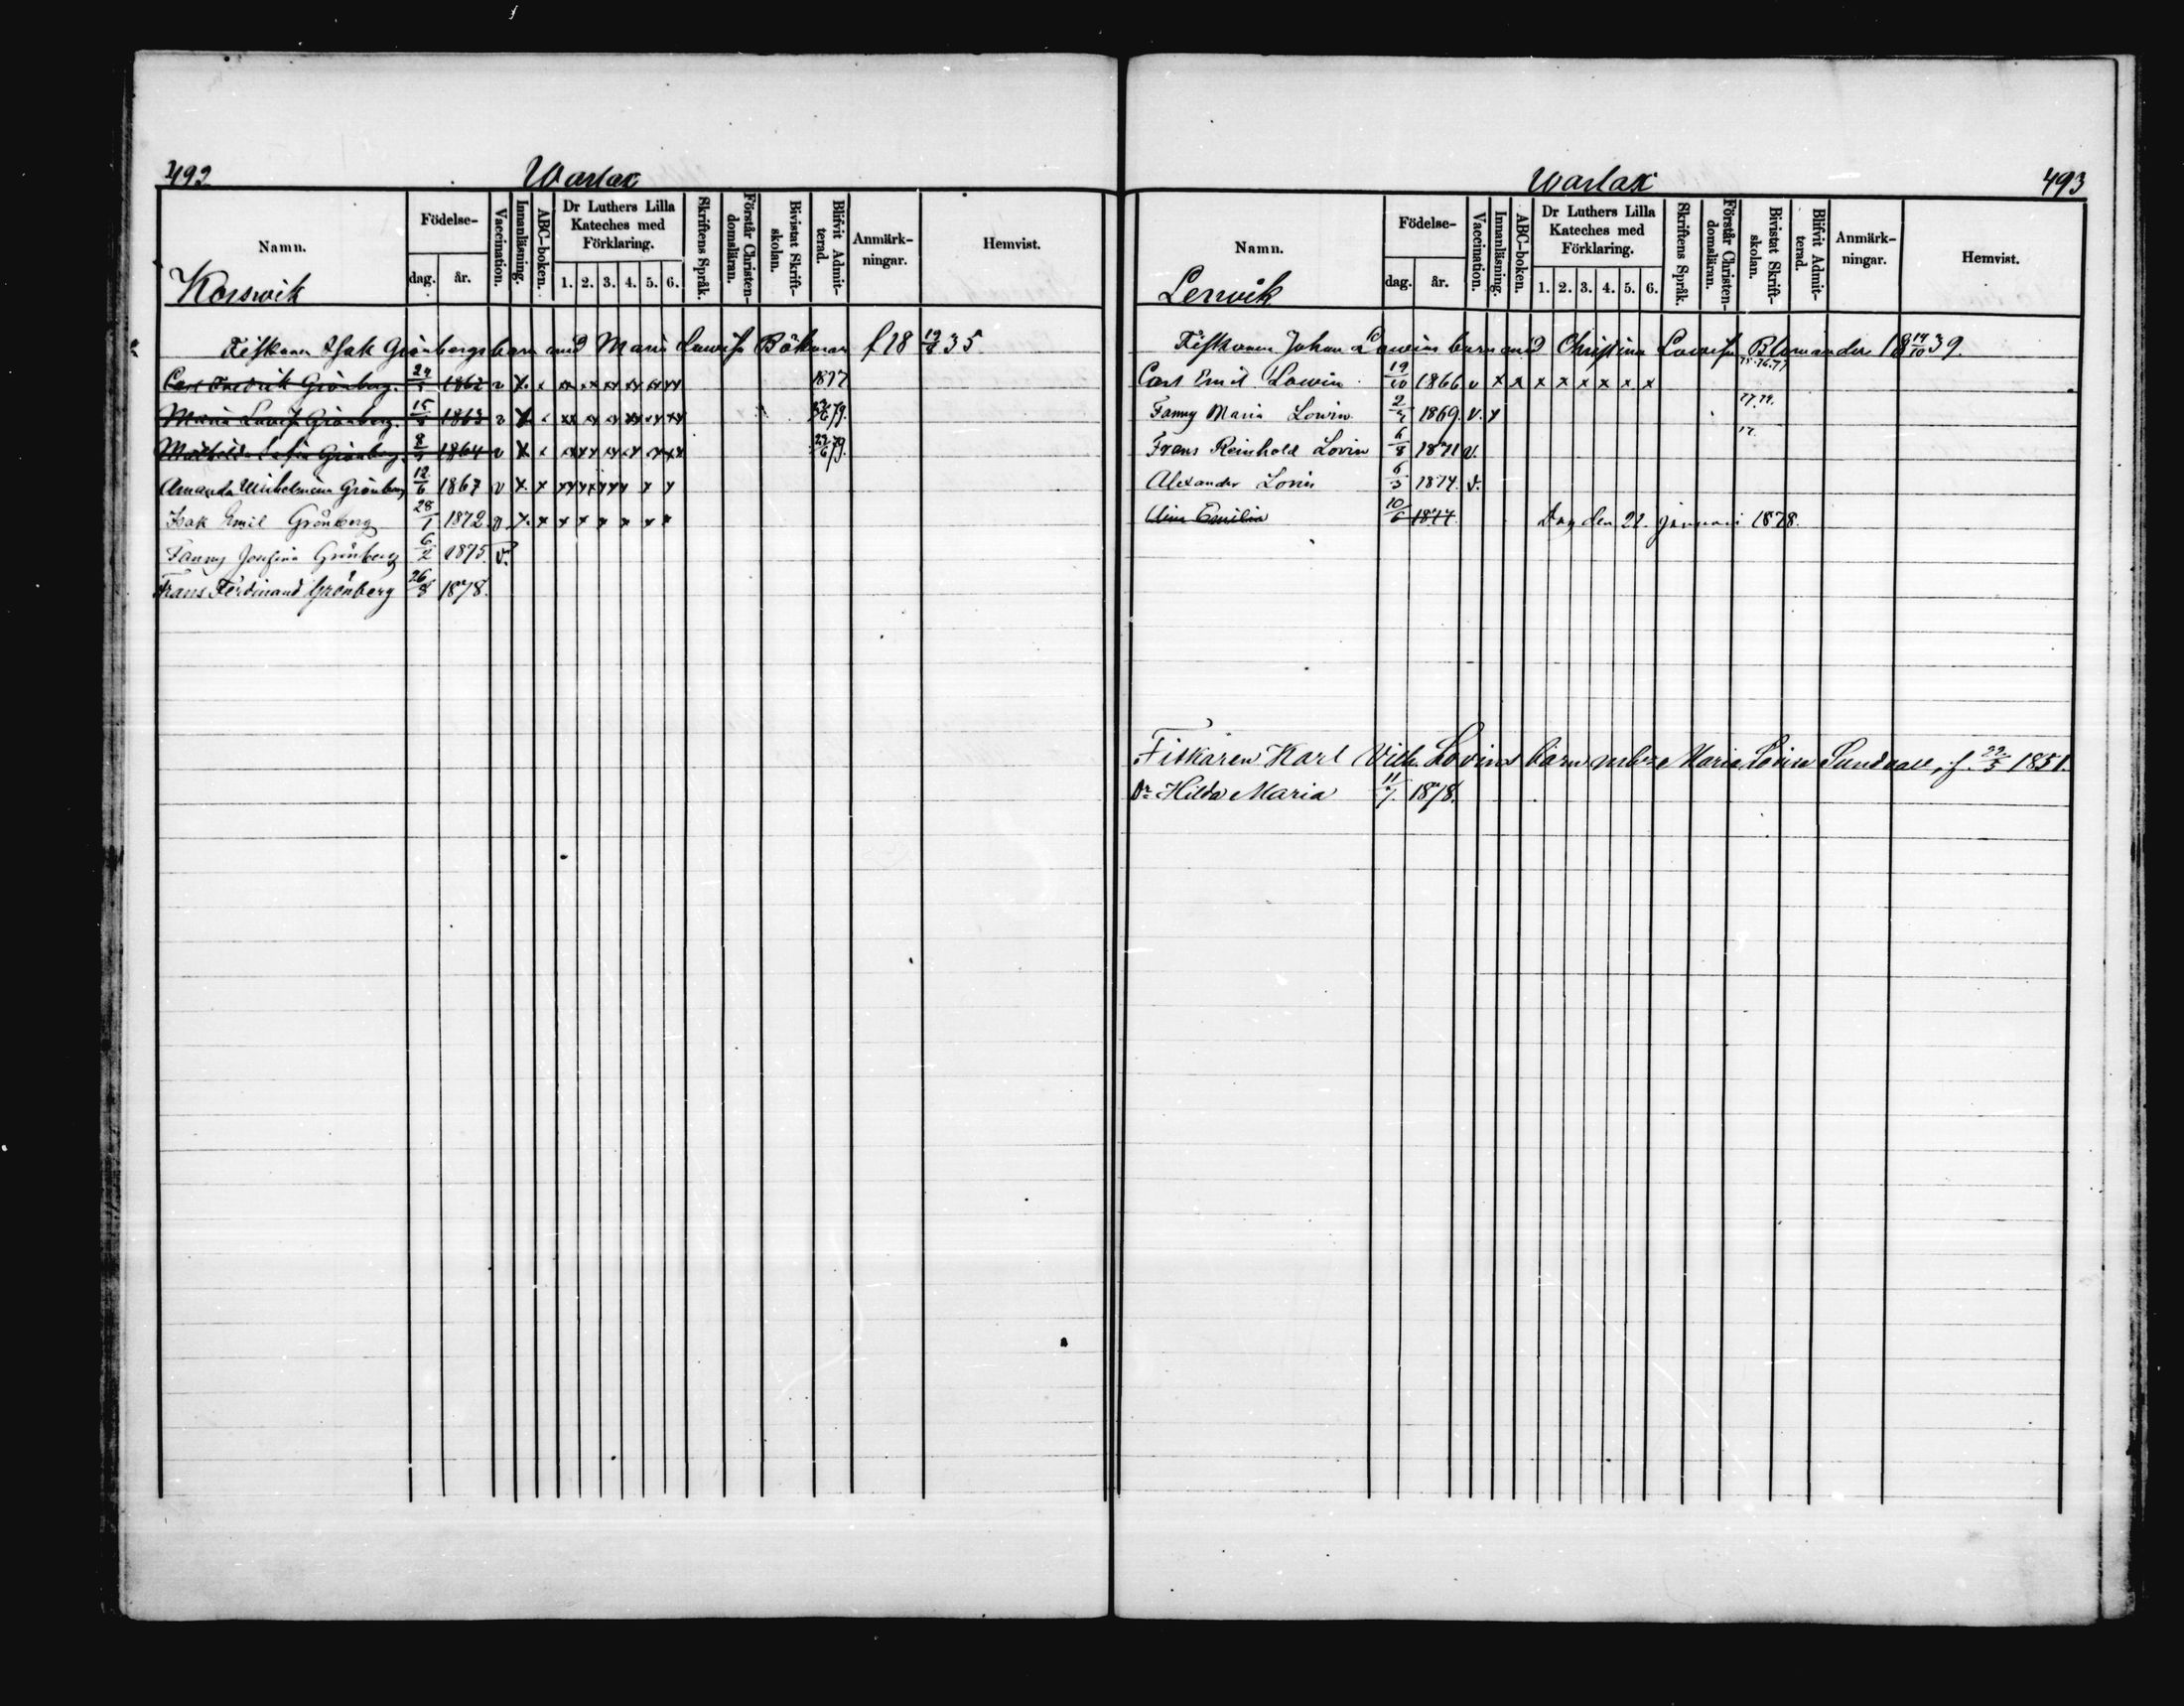 492 Warlax
Namn. Födelse- dag. år. Vaccination. Innanläsning. ABC-boken. Dr Luthers Lilla Kateches med Förklaring. 1. 2. 3. 4. 5. 6. Skriftens Språk. Förstår Christendomsläran. Bivistat Skriftskolan. Blifvit Admitterad. Anmärkningar. Hemvist.
Korswik
Fiskaren Isak Grönbergs barn med Maria Lowisa Bökman f 18 35.
Carl Fredrik Grönberg. 1862 v x 1877
Maria Lovisa Grönberg. 15 1863 v x 79.
Mathilda Sofia Grönberg 8 1864 v x 22/6 79.
Amanda Wilhelmina Grönberg 12/6 1867 v x x xx xx xx x x x
Isak Emil Grönberg 28/1 1872 v x. x x x x x x x
Fanny Josefina Grönberg 6/2 1875. v.
Frans Ferdinand Grönberg 26/8 1878.
Warlax 493
Namn. Födelse- dag. år. Vaccination. Innanläsning. ABC-boken. Dr Luthers Lilla Kateches med Förklaring. 1. 2. 3. 4. 5. 6. Skriftens Språk. Förstår Christendomsläran. Bivistat Skriftskolan. Blifvit Admitterad. Anmärkningar. Hemvist.
Lervik
Fiskaren Johan Lowins barn med Christina Lowisa Blomander 18 14/10 39.
Carl Emil Lowin 19/10 1866 v x x x x x x x x 75.76.77
Fanny Maria Lowin 2 1869. v. x 77.79.
Frans Reinhold Lovin 6/8 1871 v. 17.
Alexander Lovin 6/3 1874. v.
Emilia 10/6 1877. Dog den 21. januari 1878.
Fiskaren Karl Vilh. Lovins barn m. Maria Lovisa Sundvall, f. 22/5 1851.
Dr Hilda Maria 11/7. 1878.